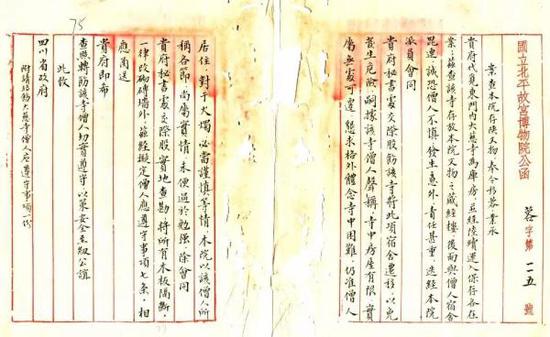 國立北平故宮博物院公函
蓉字第一一五號
案查本院存陝文物奉令移蓉業承
貴府代覓東門內大慈寺為庫房並經陸續運入保存各在
案茲查該寺存放本院文物之藏經樓後面與僧人宿舍
毘連誠恐僧人不慎發生意外責任甚重迭經本院
派員會同
貴府秘書處交際股飭該寺將此項宿舍遷移以免
發生危險嗣據該寺僧人聲稱寺中房屋有限實
屬無處可遷懇求格外體念寺中困難仍准僧人
居住對于火燭必當謹慎等情本院以該僧人所
稱各節尚屬實情未便過於勉強除會同
貴府秘書處交際股實地查勘將所有木板隔斷
一律改砌磚墻外茲經擬定僧人應遵守事項七條相
應函送
貴府即希
查照轉飭該寺僧人切實遵守以策安全至紉公誼
此致
四川省政府
附繕大慈寺僧人應遵守事項一份
75